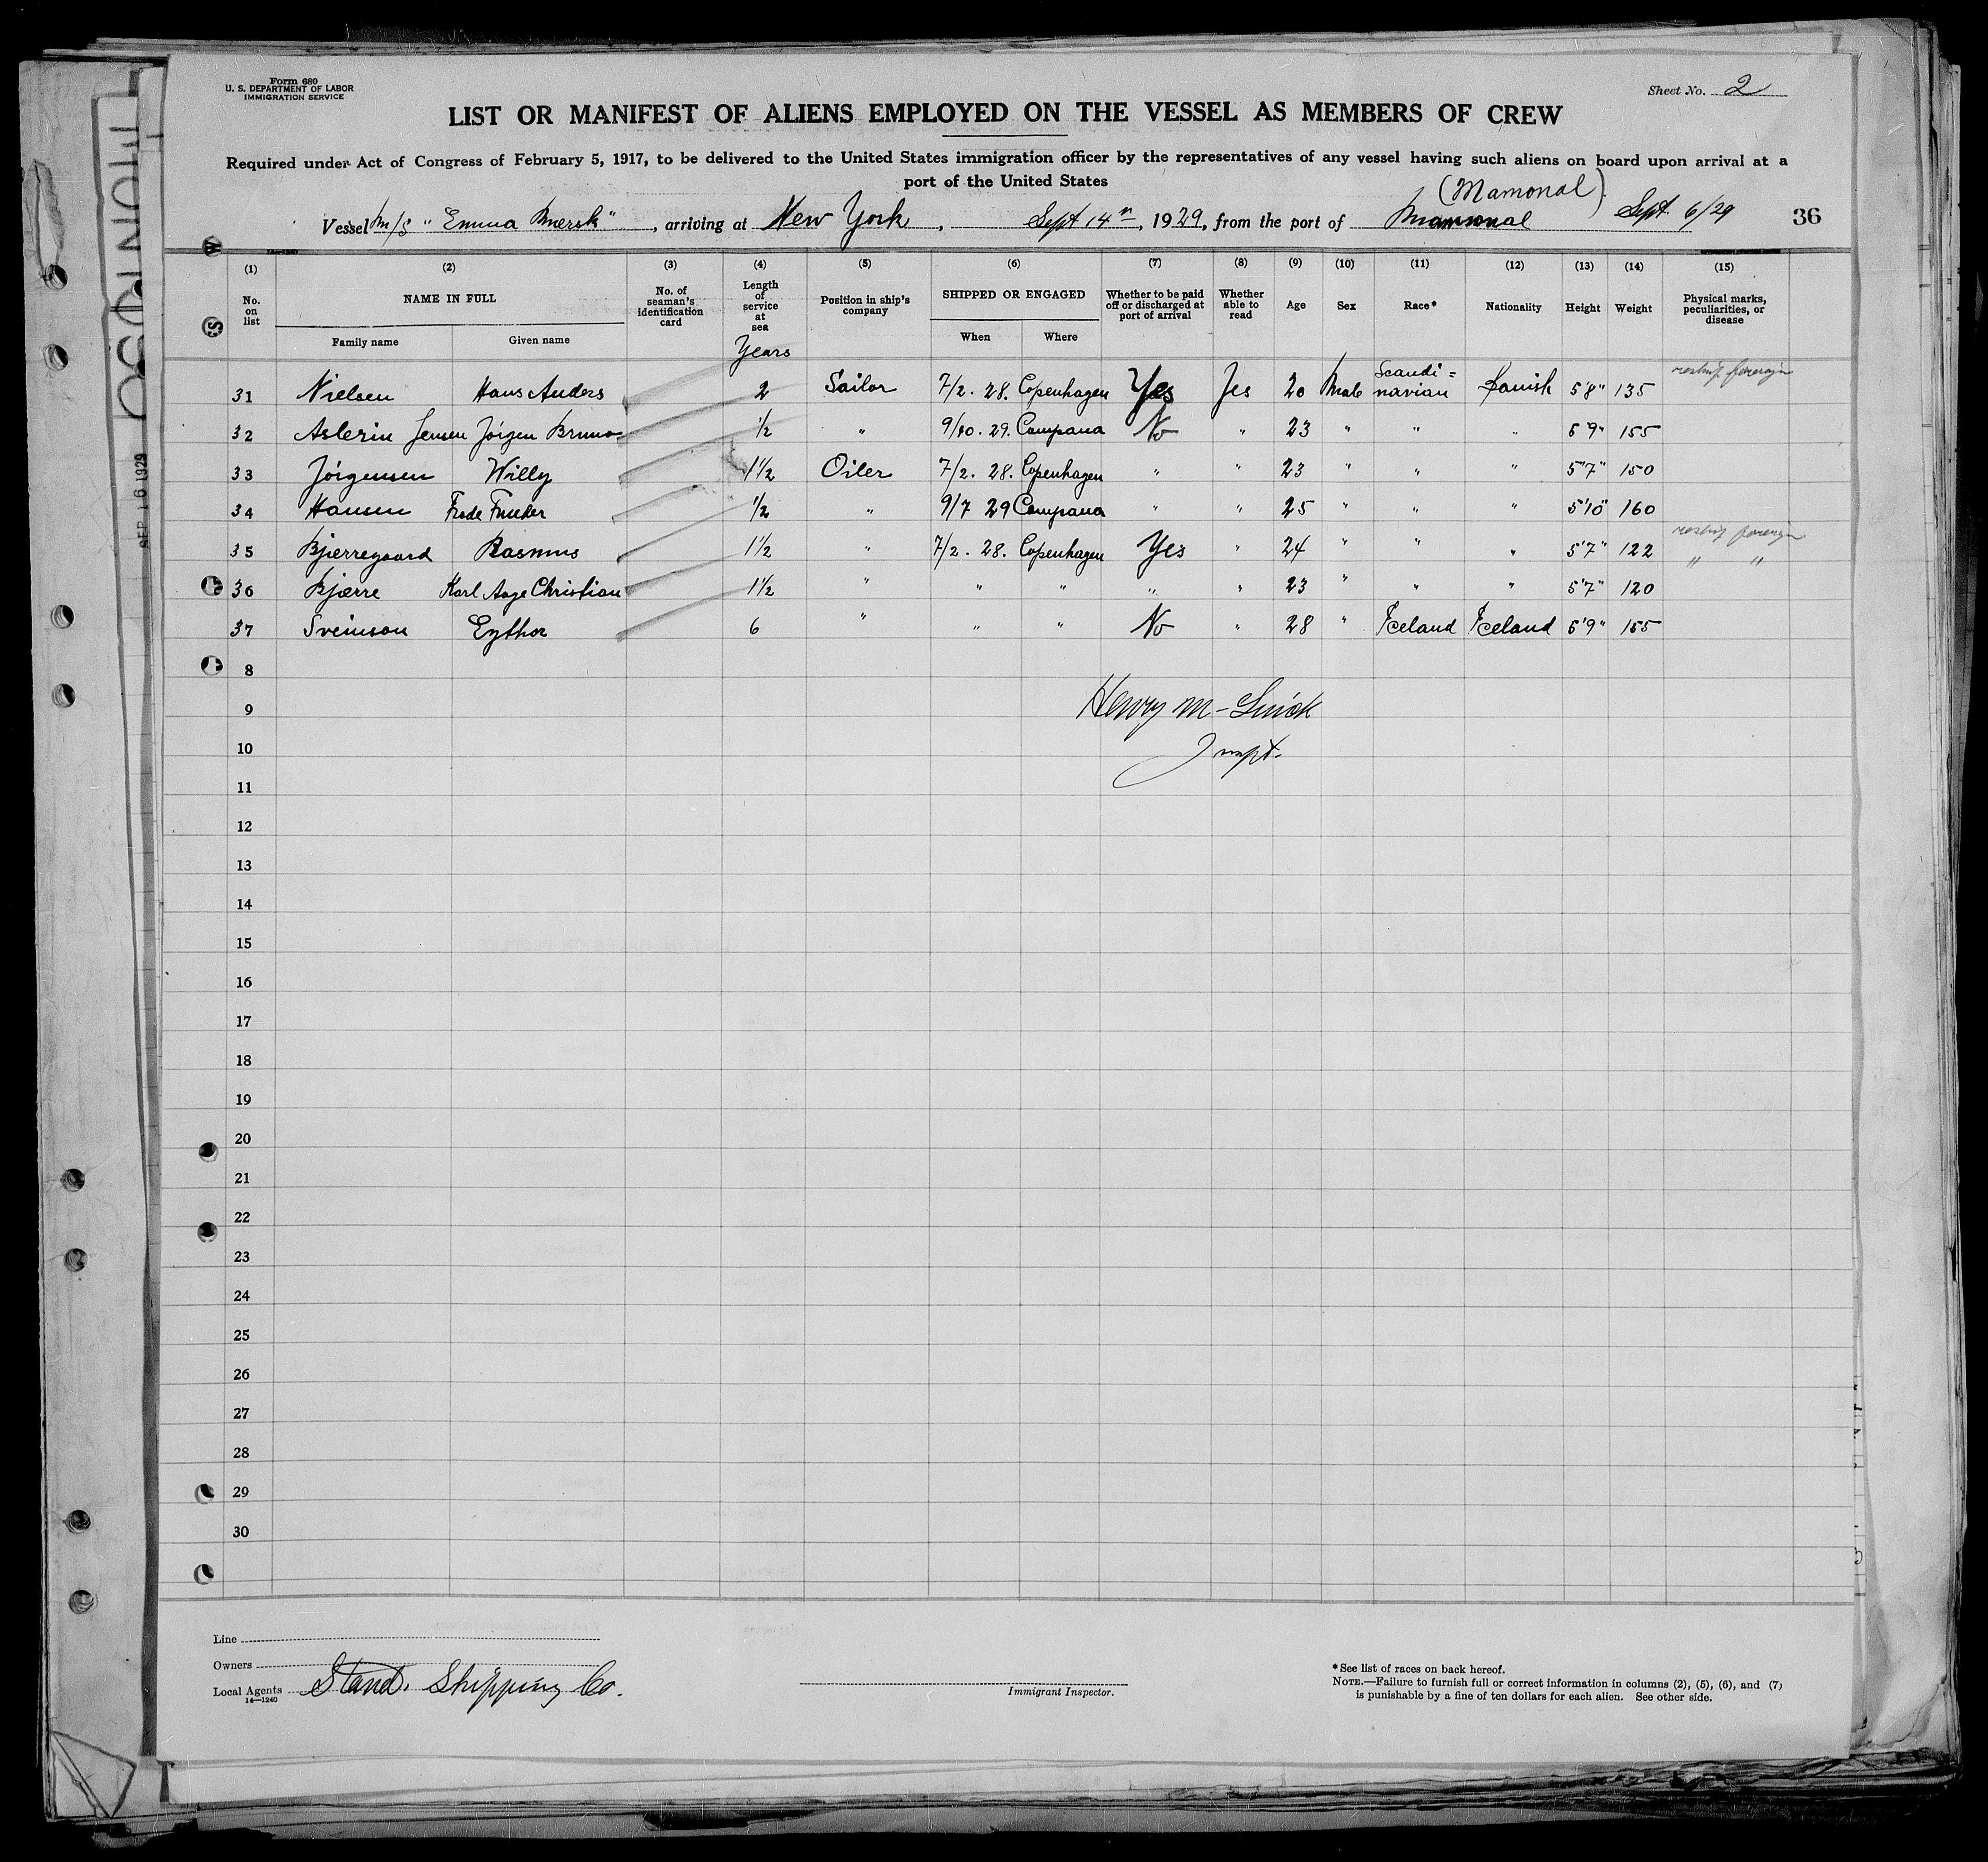 Form 680
U. S. DEPARTMENT OF LABOR
IMMIGRATION SERVICE
Sheet No. 2
LIST OR MANIFEST OF ALIENS EMPLOYED ON THE VESSEL AS MEMBERS OF CREW
Required under Act of Congress of February 5, 1917, to be delivered to the United States immigration officer by the representatives of any vessel having such aliens on board upon arrival at a
port of the United States
(Mamonal)
Vessel M/S "Emma Mærsk", arriving at New York, Sept 14th, 1929, from the port of Mamonal Sept. 6/29
36
(1) (2) (3) (4) (5) (6) (7) (8) (9) (10) (11) (12) (13) (14) (15)
No. on list NAME IN FULL Family name Given name No. of seaman's identification card Length of service at sea Years Position in ship's company SHIPPED OR ENGAGED When Where Whether to be paid off or discharged at port of arrival Whether able to read Age Sex Race* Nationality Height Weight Physical marks, peculiarities, or disease
31 Nielsen Hans Anders 2 Sailor 7/2. 28. Copenhagen Yes Yes 20 Male Scandi=navian Danish 5'8" 135 reship foreign
32 Asterin Jensen Jörgen Bruno 1/2 " 9/10. 29. Campana No " 23 " " " 5'9" 155
33 Jörgensen Willy 1 1/2 Oiler 7/2. 28. Copenhagen " " 23 " " " 5'7" 150
34 Hansen Frode 1/2 " 9/7 29 Campana " " 25 " " " 5'10" 160
35 Bjerregaard Rasmus 1 1/2 " 7/2. 28. Copenhagen Yes " 24 " " " 5'7" 122 reship foreign
36 Bjerre Karl Aage Christian 1 1/2 " " " " " 23 " " " 5'7" 120 " "
37 Sveinson Eythor 6 " " " No " 28 " Iceland Iceland 5'9" 155
8
9
Henry M-
10
11
12
13
14
15
16
17
18
19
20
21
22
23
24
25
26
27
28
29
30
Line
Owners
Local Agents Stand. Shipping Co.
14—1240
Immigrant Inspector.
*See list of races on back hereof.
NOTE.—Failure to furnish full or correct information in columns (2), (5), (6), and (7)
is punishable by a fine of ten dollars for each alien. See other side.
SEP 16 1929